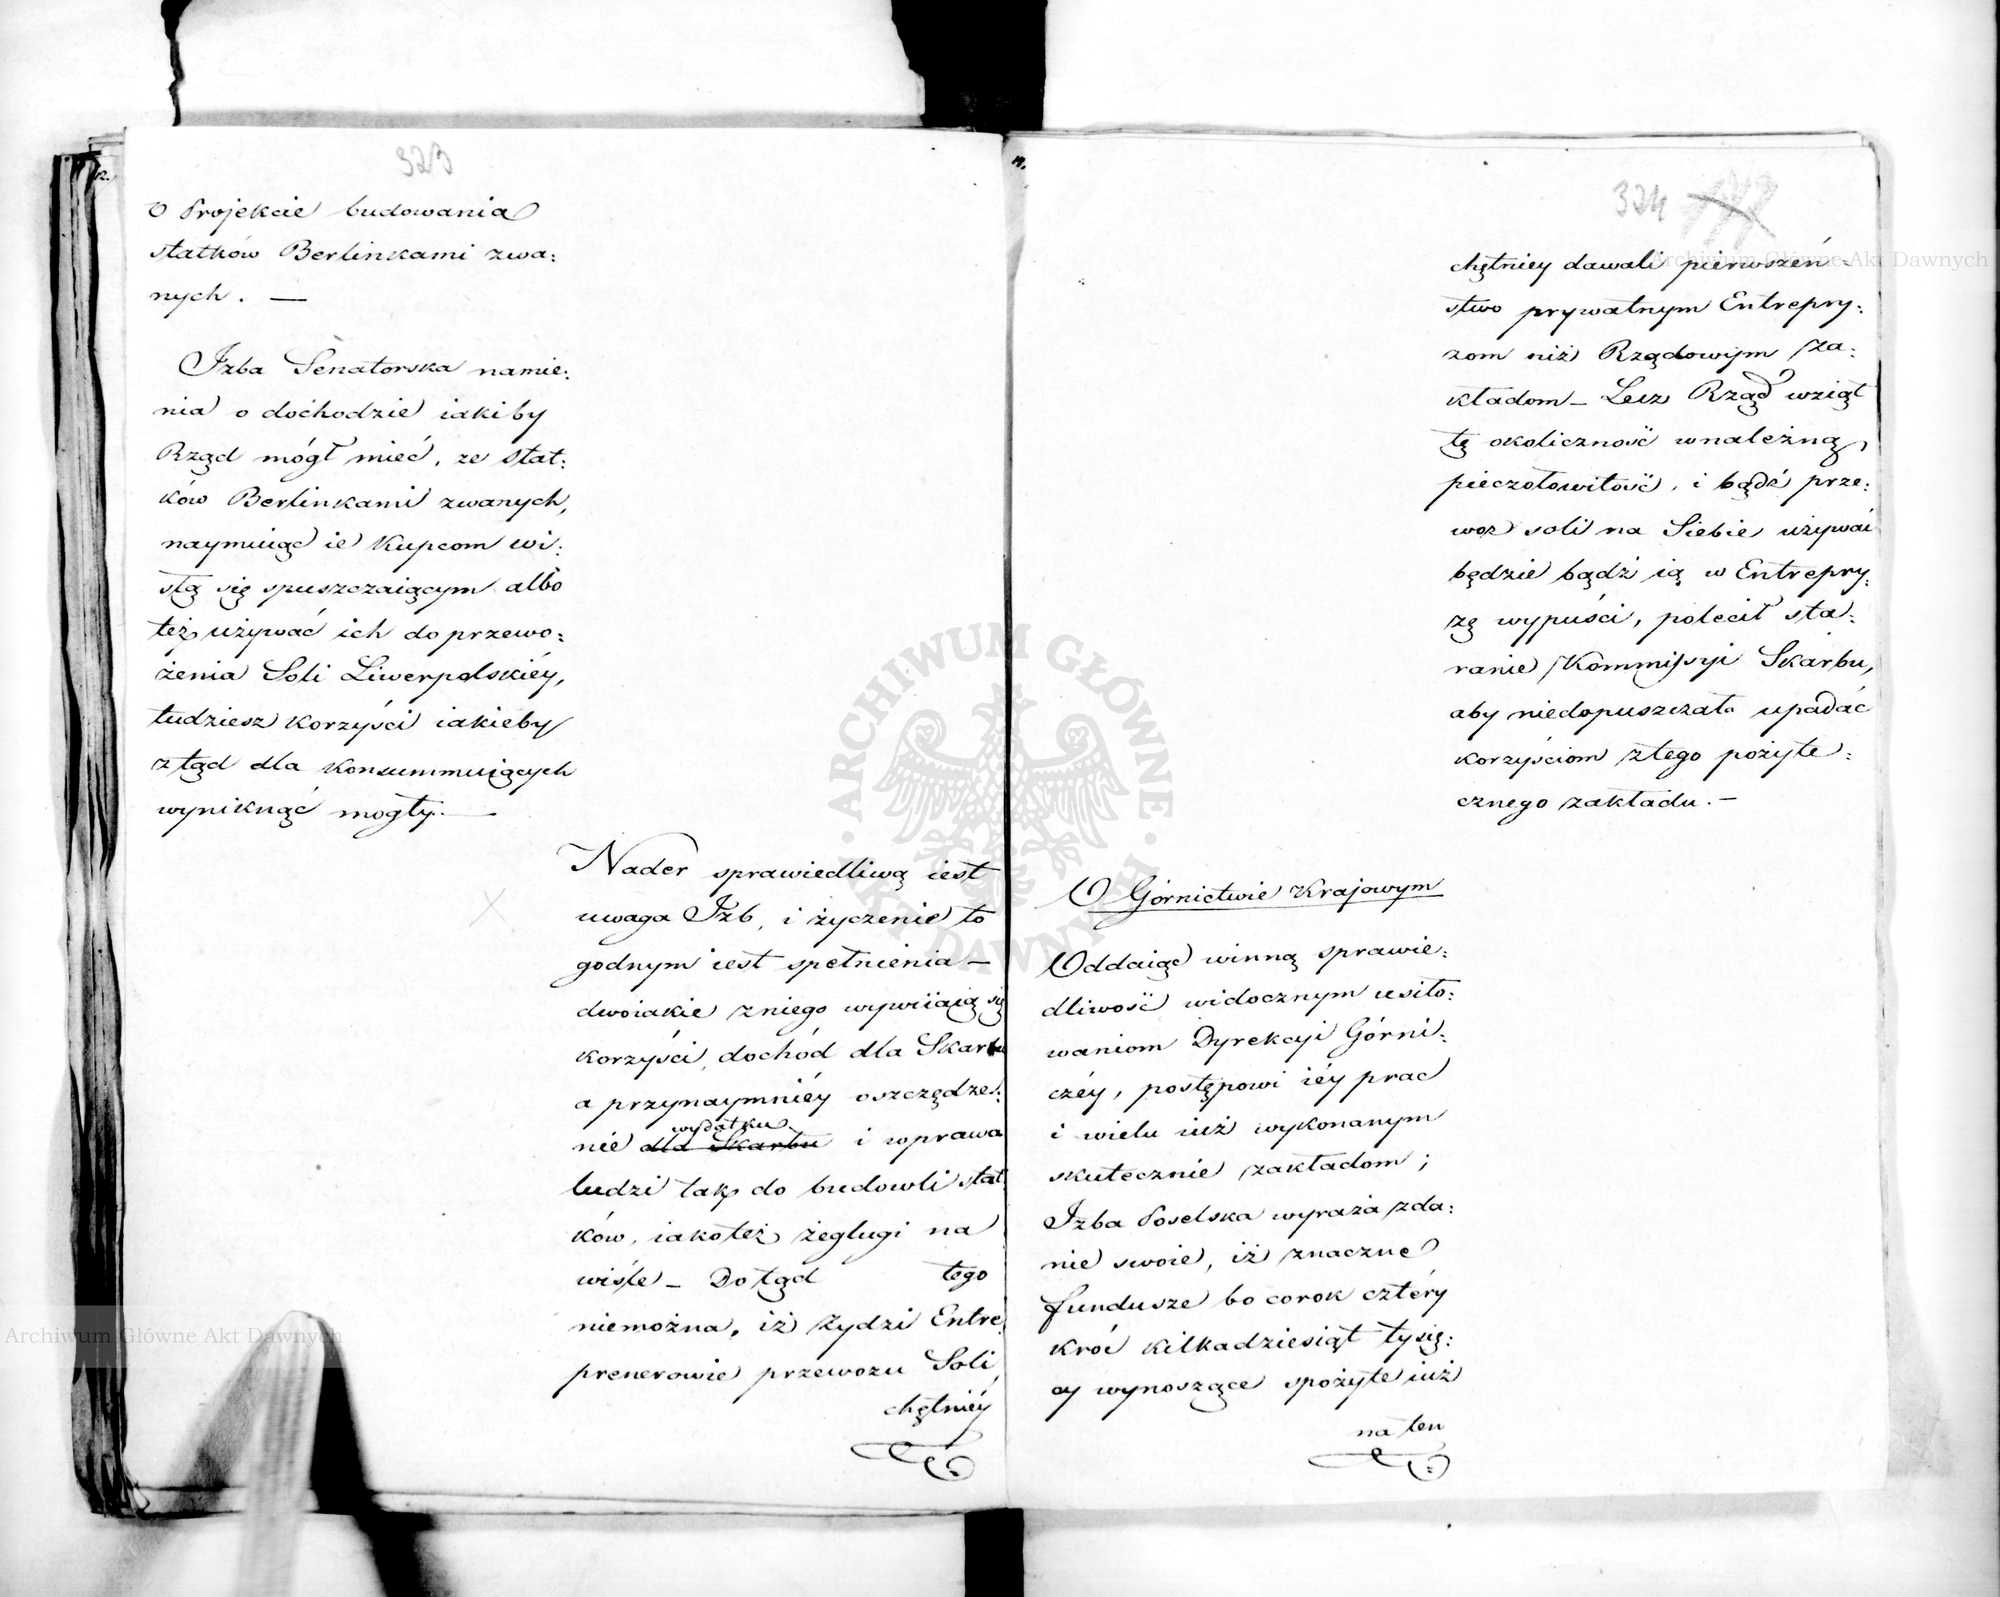 323
O Projekcie budowania
statków Berlinkami zwa:
nych. —
Izba Senatorska namie:
nia o dochodzie iakiby
Rząd mógł mieć, ze stat:
ków Berlinkami zwanych,
naymuiąc ie Kupcom wi:
słą się spuszczaiącym albo
też używać ich do przewo:
żenia Soli Liwerpolskiéy,
tudziesz korzyści iakieby
ztąd dla konsummuiących
wyniknąć mogły. —
Nader sprawiedliwą iest
uwaga Izb, i życzenie to
godnym iest spełnienia —
dwoiakie zniego wywiiaią się
korzyści, dochód dla Skarbu
a przynaymniéy oszczędze:
wydatku
nie dla Skarbu i wprawa
ludzi tak do budowli stat:
ków, iakoteż żeglugi na
wiśle — Dotąd tego
niemożna, iż Żydzi Entre:
prenerowie przewozu Soli,
chętniéy
324
chętniey dawali pierwszeń:
stwo prywatnym Entrepry:
zom niż Rządowym Za:
kładom — Lecz Rząd wziął
tę okoliczność wnależną
pieczołowitość, i bądź prze:
woz soli na Siebie używać
będzie bądź ią w Entrepry:
zę wypuści, polecił sta:
ranie Kommissyi Skarbu,
aby niedopuszczała upadać
korzyściom ztego pożyte:
cznego zakładu. —
O Górnictwie Krajowym
Oddaiąc winną sprawie:
dliwość widocznym usiło:
waniom Dyrekcyi Górni:
czéy, postępowi iéy prac
i wielu iuż wykonanym
skutecznie zakładom;
Izba Poselska wyraża zda:
nie swoie, iż znaczne
fundusze bo corok cztéry
kroć kilkadziesiąt tysię:
cy wynoszące spożyte iuż
na ten
Archiwum Główne Akt Dawnych
Archiwum Główne Akt Dawnych
ARCHIWUM GŁÓWNE AKT DAWNYCH